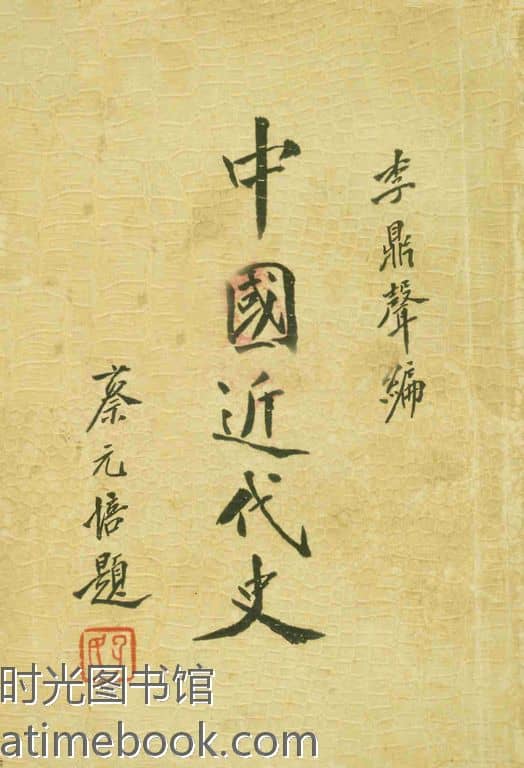 李鼎聲編
中國近代史
蔡元培題
时光图书馆
atimebook.com